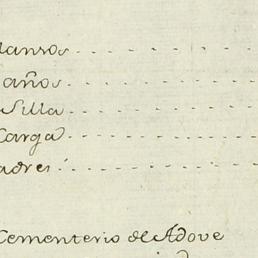 lansos - - - - - - - - - -
años - - - - - - - - - -
Silla - - - - - - - - - -
Carga - - - - - - - - - -
adres - - - - - - - - - -
Cementerio de Adove